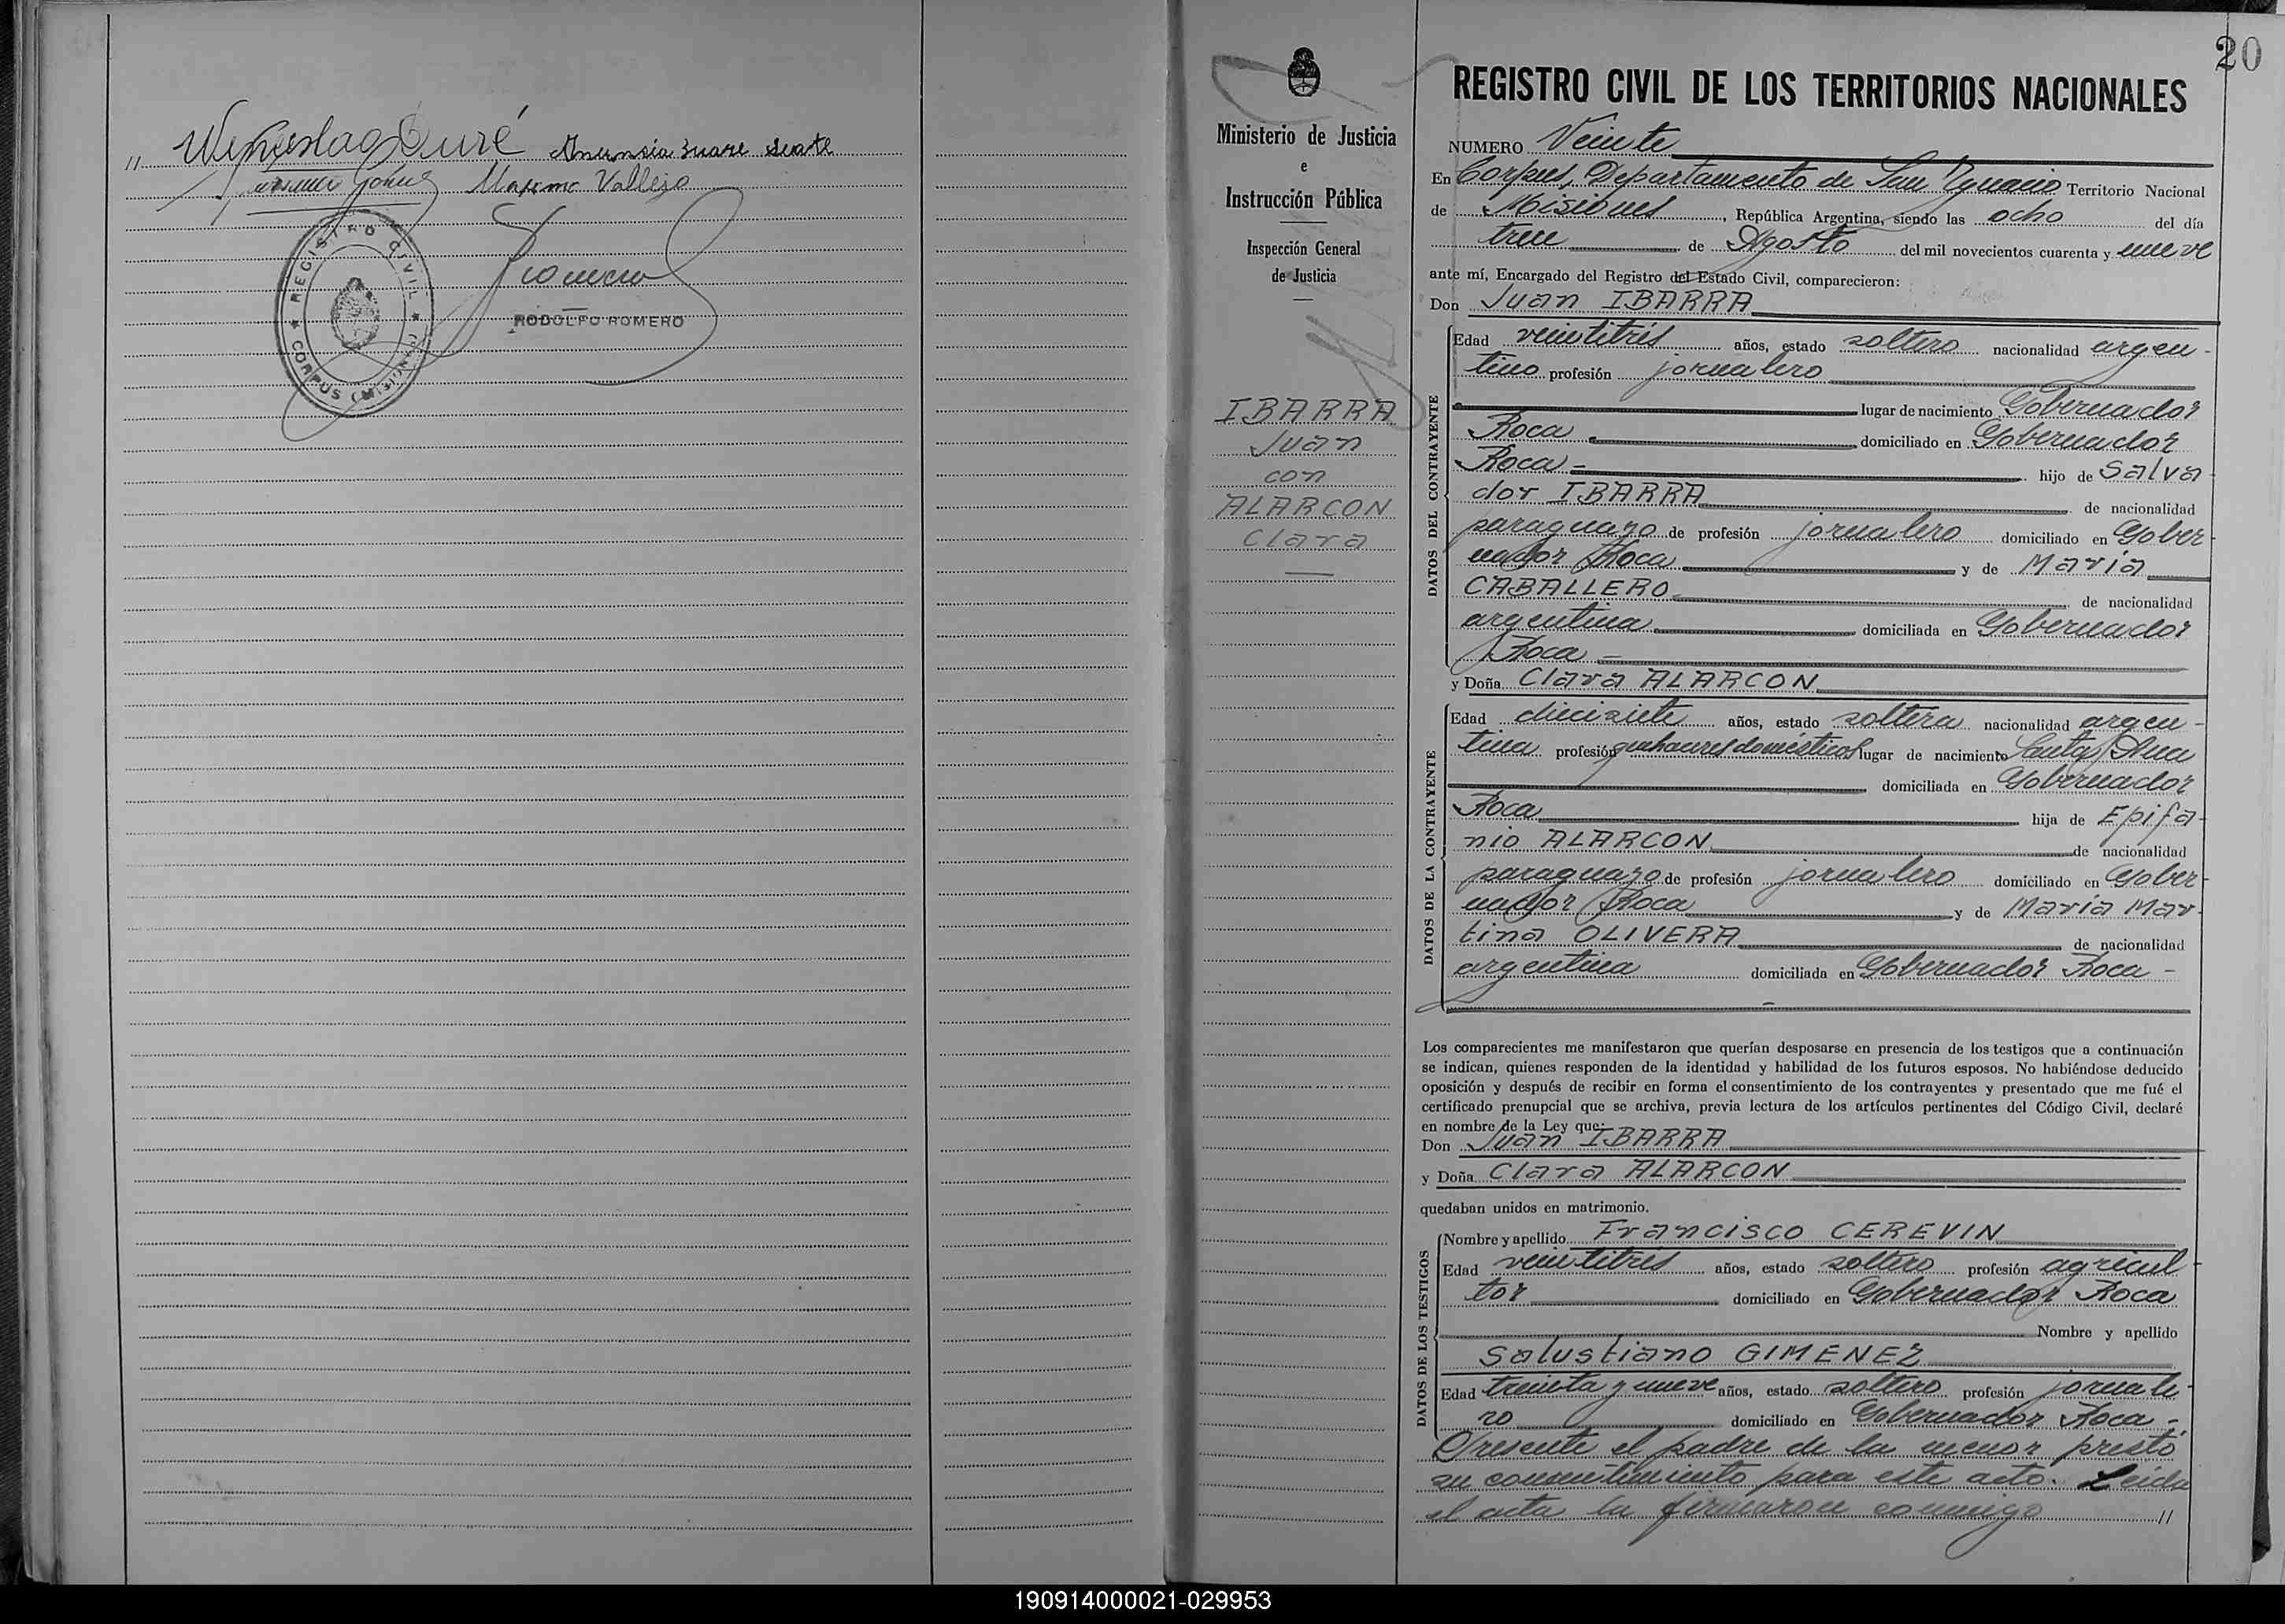 " Wenceslao Duré Anuncia Zuare Duate
Gomez Maximo Vallejo
REGISTRO CIVIL
★ CORPUS (MISIONES) ★
Romero
RODOLFO ROMERO
20
Ministerio de Justicia
e
Instrucción Pública
Inspección General
de Justicia
IBARRA
Juan
con
ALARCON
Clara
REGISTRO CIVIL DE LOS TERRITORIOS NACIONALES
NUMERO Veinte
En Corpus, Departamento de San Ignacio Territorio Nacional
de Misiones, República Argentina, siendo las ocho del día
trece de Agosto del mil novecientos cuarenta y nueve
ante mí, Encargado del Registro del Estado Civil, comparecieron:
Don Juan IBARRA
DATOS DEL CONTRAYENTE
Edad veintitrés años, estado soltero nacionalidad argen-
tino profesión jornalero
lugar de nacimiento Gobernador
Roca domiciliado en Gobernador
Roca - hijo de Salva-
dor IBARRA de nacionalidad
paraguayo de profesión jornalero domiciliado en Gober-
nador Roca y de María
CABALLERO de nacionalidad
argentina domiciliada en Gobernador
Roca -
y Doña Clara ALARCON
DATOS DE LA CONTRAYENTE
Edad diecisiete años, estado soltera nacionalidad argen-
tina profesión quehaceres domésticos lugar de nacimiento Santa Ana
domiciliada en Gobernador
Roca hija de Epifa-
nio ALARCON de nacionalidad
paraguayo de profesión jornalero domiciliado en Gober-
nador Roca y de María Mar-
tina OLIVERA de nacionalidad
argentina domiciliada en Gobernador Roca -
Los comparecientes me manifestaron que querían desposarse en presencia de los testigos que a continuación
se indican, quienes responden de la identidad y habilidad de los futuros esposos. No habiéndose deducido
oposición y después de recibir en forma el consentimiento de los contrayentes y presentado que me fué el
certificado prenupcial que se archiva, previa lectura de los artículos pertinentes del Código Civil, declaré
en nombre de la Ley que:
Don Juan IBARRA
y Doña Clara ALARCON
quedaban unidos en matrimonio.
DATOS DE LOS TESTIGOS
Nombre y apellido Francisco CEREVIN
Edad veintitrés años, estado soltero profesión agricul-
tor domiciliado en Gobernador Roca
Nombre y apellido
Salustiano GIMENEZ
Edad treinta y nueve años, estado soltero profesión jornale-
ro domiciliado en Gobernador Roca -
Presente el padre de la menor prestó
su consentimiento para este acto. Leída
el acta la firmaron conmigo //
190914000021-029953